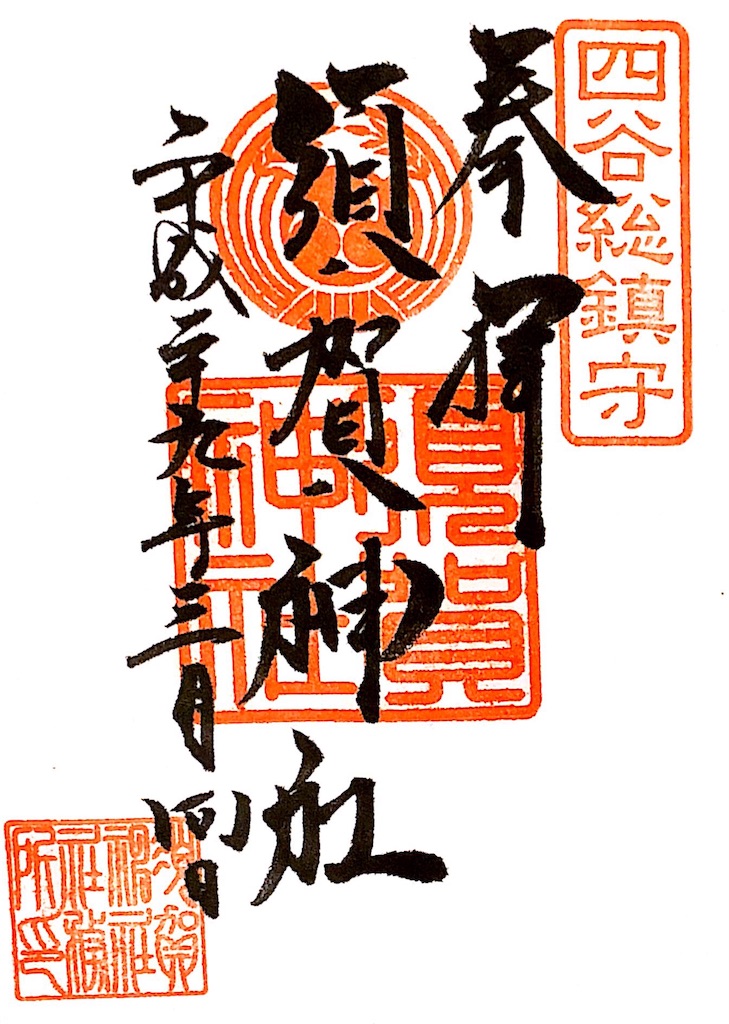 四谷総鎮守
奉拝
須賀神社
平成二十九年三月四日
須賀神社
須賀神社社務所印